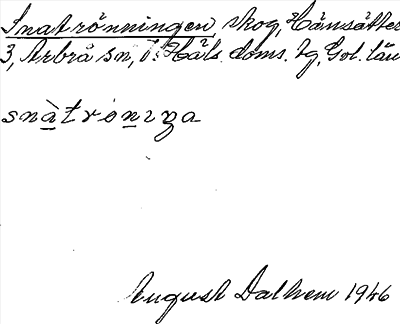 Snatrönningen, skog, Hänsätter
3, Arbrå sn, v. Häls. doms. tg, Gvl. län
snàtrónıŋa
August Dalhem 1946